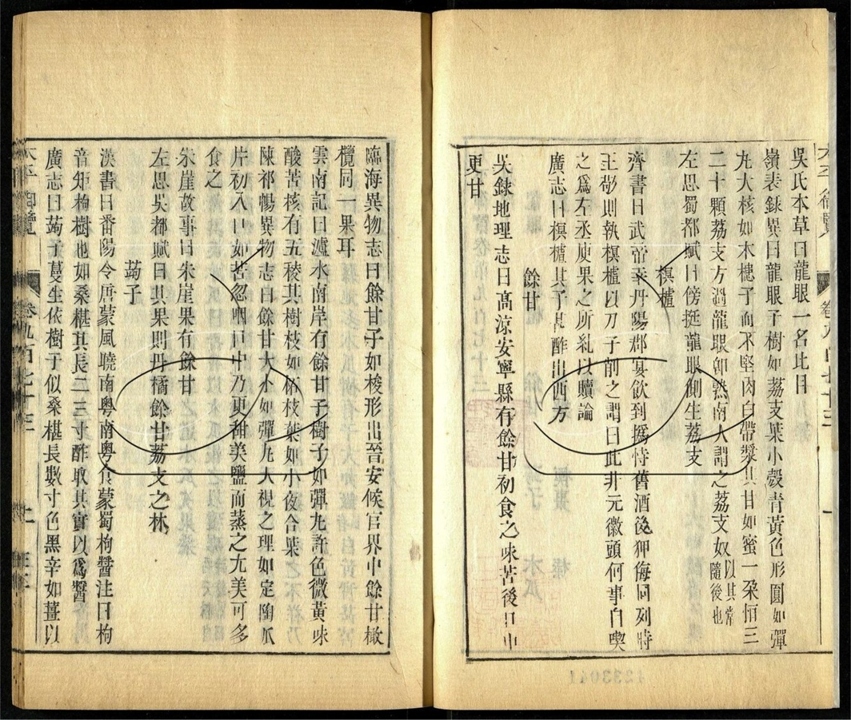 吳氏本草曰龍眼一名此目
嶺表錄異曰龍眼子樹如荔支葉小殼青黃色形圓如彈
丸大核如木槵子而不堅肉白帶漿其甘如蜜一朶恒三
二十顆荔支方過龍眼卽熟南人謂之荔支奴以其常隨後也
左思蜀都賦曰傍挺龍眼側生荔支
榠樝
齊書曰武帝幸丹陽郡宴飲到撝恃舊酒後狎侮同列時
王敬則執榠樝以刀子削之謂曰此非元徽頭何事自
之爲左丞庾果之所糺以贖論
廣志曰榠樝其子甚酢出西方
餘甘
吳錄地理志曰高涼安寧縣有餘甘初食之味苦後口中
更甘
太平御覽 卷九百七十三
臨海異物志曰餘甘子如梭形出晉安候官界中餘甘橄
欖同一果耳
雲南記曰瀘水南岸有餘甘子樹子如彈丸許色微黃味
酸苦核有五稜其樹枝如柘枝葉如小夜合葉
陳祁暢異物志曰餘甘大小如彈丸大視之理如定陶瓜
片初入口如苦忽咽口中乃更甜美鹽而蒸之尤美可多
食之
朱崖故事曰朱崖果有餘甘
左思吳都賦曰其果則丹橘餘甘荔支之林
蒟子
漢書曰番陽令唐蒙風曉南粵南粵食蒙蜀枸醬注曰枸
音矩枸樹也如桑椹其長二三寸酢取其實以爲醬
廣志曰蒟子蔓生依樹子似桑椹長數寸色黑辛如薑以
太平御覽 卷九百七十三